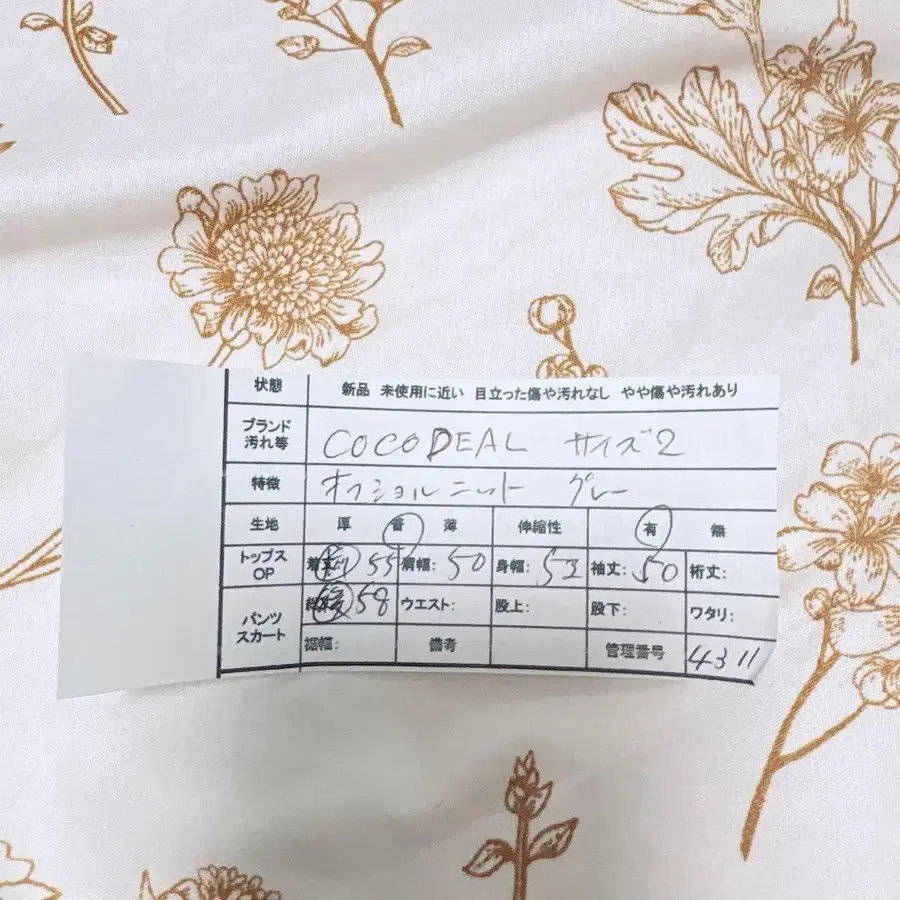 状態 新品 未使用に近い 目立った傷や汚れなし やや傷や汚れあり
ブランド
汚れ等 COCO DEAL サイズ2
特徴 オフショルニット グレー
生地 厚 普 薄 伸縮性 有 無
トップス
OP 着丈: 前 55 肩幅: 50 身幅: 53 袖丈: 50 裄丈:
パンツ
スカート 後 58 ウエスト: 股上: 股下: ワタリ:
裾幅: 備考 管理番号 4311